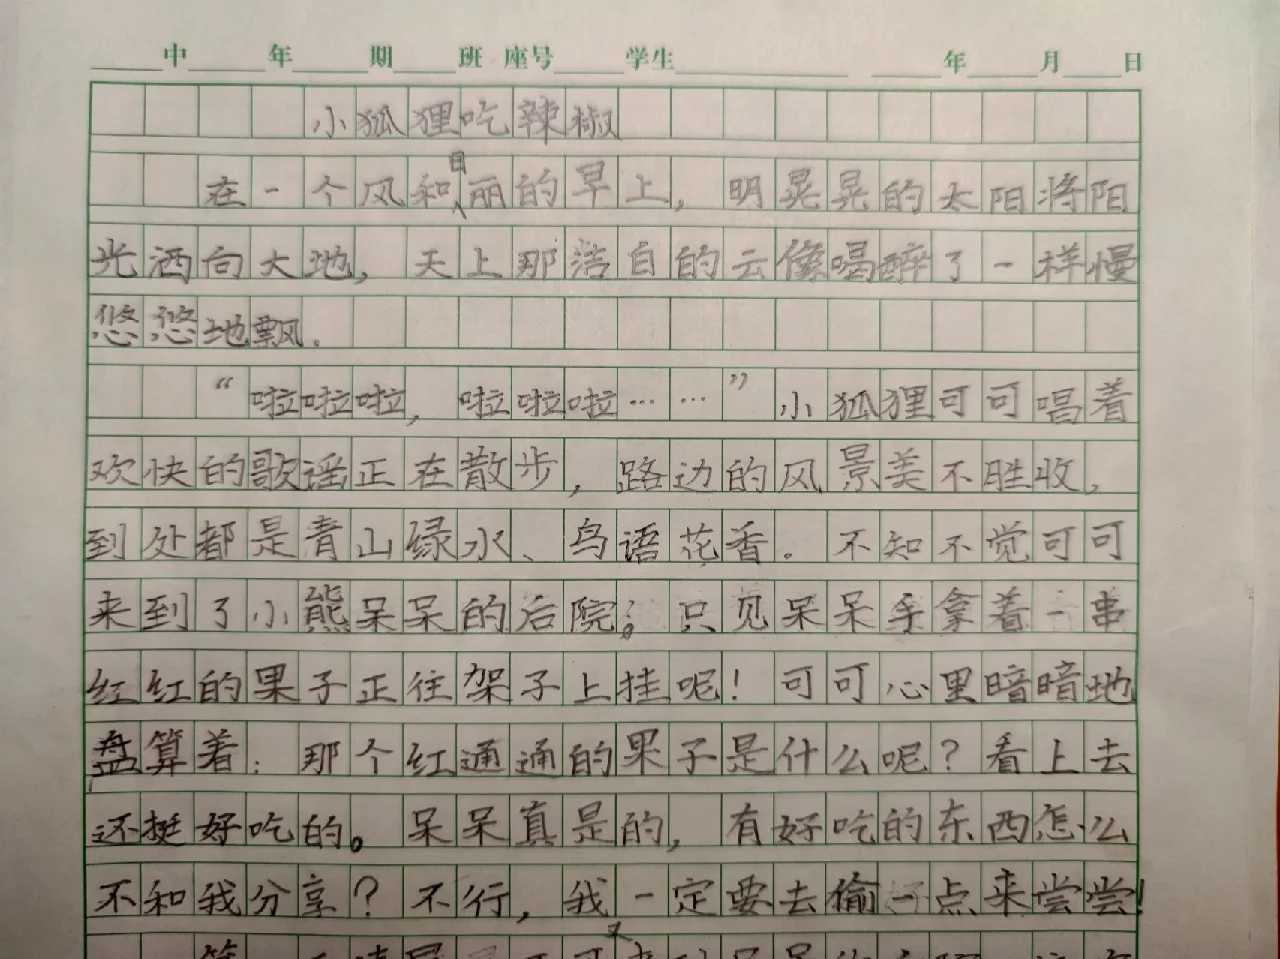 中 年 期 班 座号 学生 年 月 日
小狐狸吃辣椒
在一个风和日丽的早上，明晃晃的太阳将阳
光洒向大地，天上那洁白的云像喝醉了一样慢
悠悠地飘。
“啦啦啦，啦啦啦……”小狐狸可可唱着
欢快的歌谣正在散步，路边的风景美不胜收，
到处都是青山绿水、鸟语花香。不知不觉可可
来到了小熊呆呆的后院。只见呆呆手拿着一串
红红的果子正往架子上挂呢！可可心里暗暗地
盘算着：那个红通通的果子是什么呢？看上去
还挺好吃的。呆呆真是的，有好吃的东西怎么
不和我分享？不行，我一定要去偷一点来尝尝！